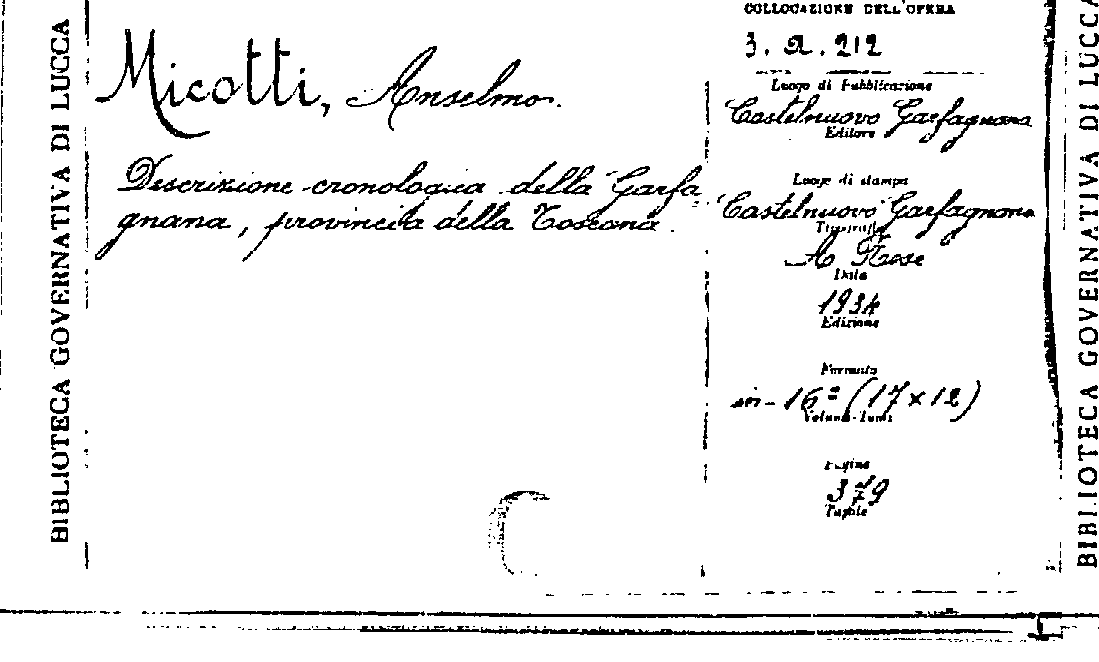 BIBLIOTECA GOVERNATIVA DI LUCCA
Micotti, Anselmo.
Descrizione cronologica della Garfa-
gnana, provincia della Toscana.
COLLOCAZIONE DELL'OPERA
3. a. 212
Luogo di Pubblicazione
Castelnuovo Garfagnana
Editore
Luogo di stampa
Castelnuovo Garfagnana
Tipografia
A Rose
Data
1934
Edizione
Formato
in-16º (17x12)
Volumi-Tomi
Pagine
379
Tavole
BIBLIOTECA GOVERNATIVA DI LUCCA